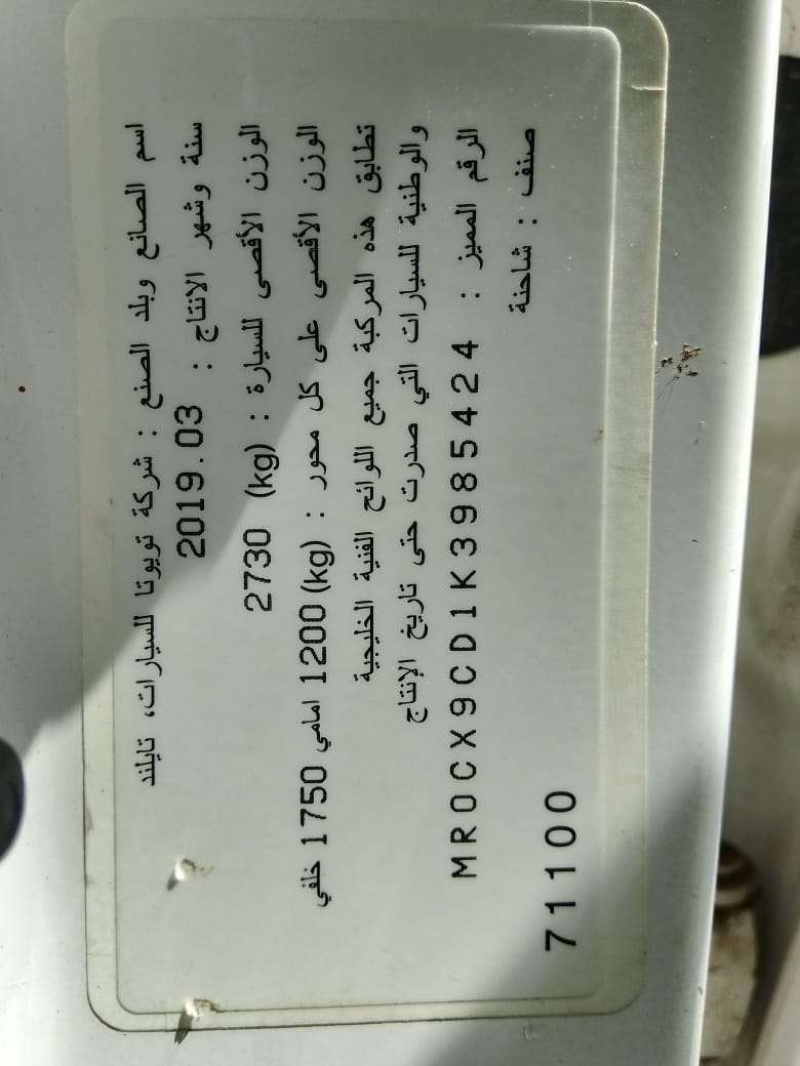 اسم الصانع وبلد الصنع : شركة تويوتا للسيارات، تايلند
سنة وشهر الانتاج : 2019.03
الوزن الأقصى للسيارة : 2730 (kg)
الوزن الأقصى على كل محور : 1200 (kg) امامي 1750 خلفي
تطابق هذه المركبة جميع اللوائح الفنية الخليجية
والوطنية للسيارات التي صدرت حتى تاريخ الإنتاج
الرقم المميز : MR0CX9CD1K3985424
صنف : شاحنة
71100